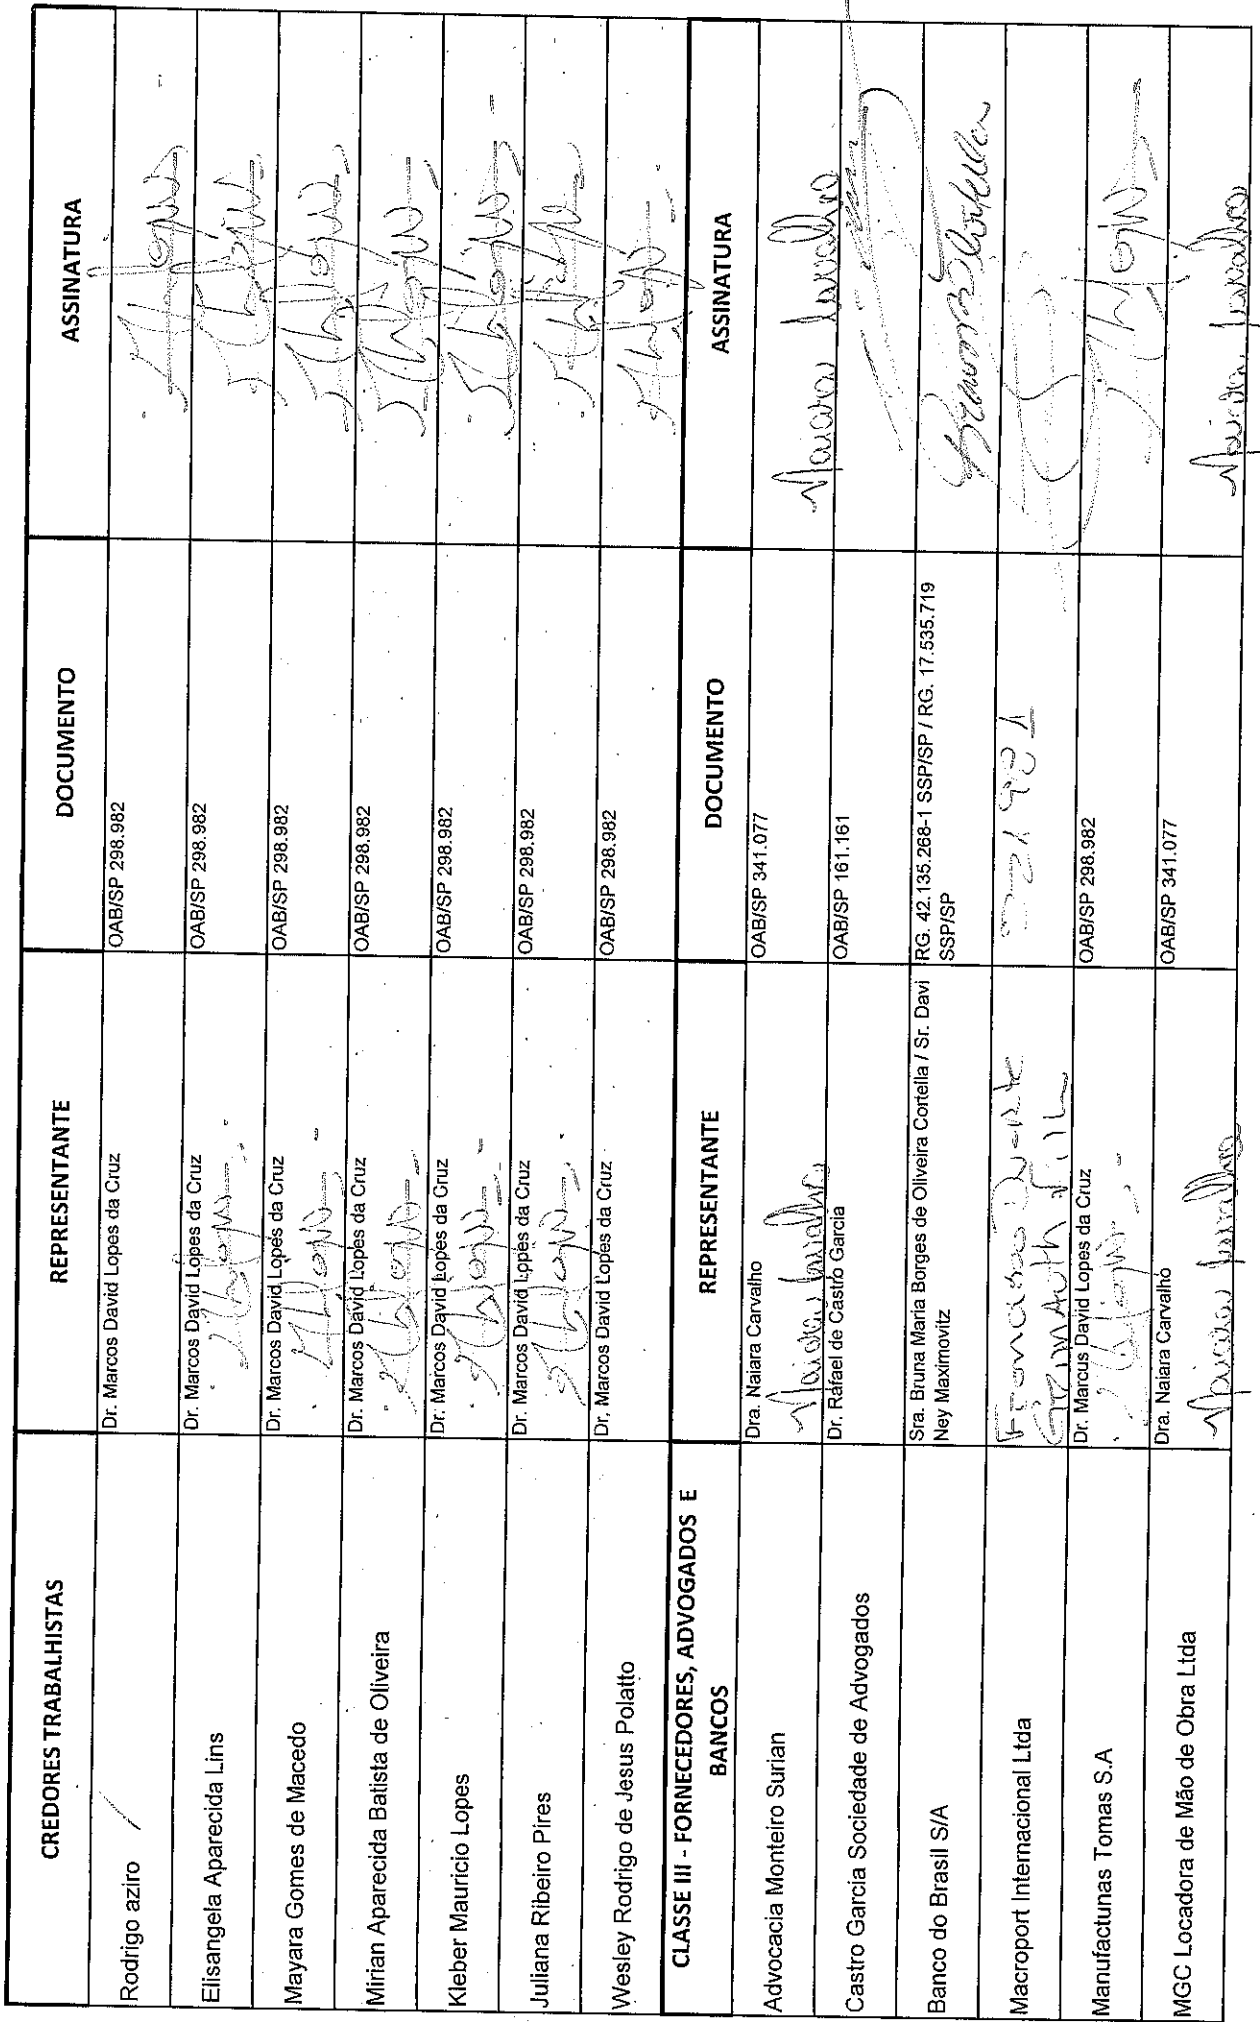 CREDORES TRABALHISTAS REPRESENTANTE DOCUMENTO ASSINATURA
Rodrigo aziro Dr. Marcos David Lopes da Cruz OAB/SP 298.982
Elisangela Aparecida Lins Dr. Marcos David Lopes da Cruz OAB/SP 298.982
Mayara Gomes de Macedo Dr. Marcos David Lopes da Cruz OAB/SP 298.982
Mirian Aparecida Batista de Oliveira Dr. Marcos David Lopes da Cruz OAB/SP 298.982
Kleber Mauricio Lopes Dr. Marcos David Lopes da Cruz OAB/SP 298.982
Juliana Ribeiro Pires Dr. Marcos David Lopes da Cruz OAB/SP 298.982
Wesley Rodrigo de Jesus Polatto Dr. Marcos David Lopes da Cruz OAB/SP 298.982
CLASSE III - FORNECEDORES, ADVOGADOS E
BANCOS
REPRESENTANTE DOCUMENTO ASSINATURA
Advocacia Monteiro Surian Dra. Naiara Carvalho OAB/SP 341.077
Naiara Carvalho Naiara Carvalho
Castro Garcia Sociedade de Advogados Dr. Rafael de Castro Garcia OAB/SP 161.161
Banco do Brasil S/A Sra. Bruna Maria Borges de Oliveira Cortella / Sr. Davi RG. 42.135.268-1 SSP/SP / RG. 17.535.719
Ney Maximovitz SSP/SP
Macroport Internacional Ltda
Manufacturas Tomas S.A Dr. Marcus David Lopes da Cruz OAB/SP 298.982
MGC Locadora de Mão de Obra Ltda Dra. Naiara Carvalho OAB/SP 341.077
Naiara Carvalho Naiara Carvalho